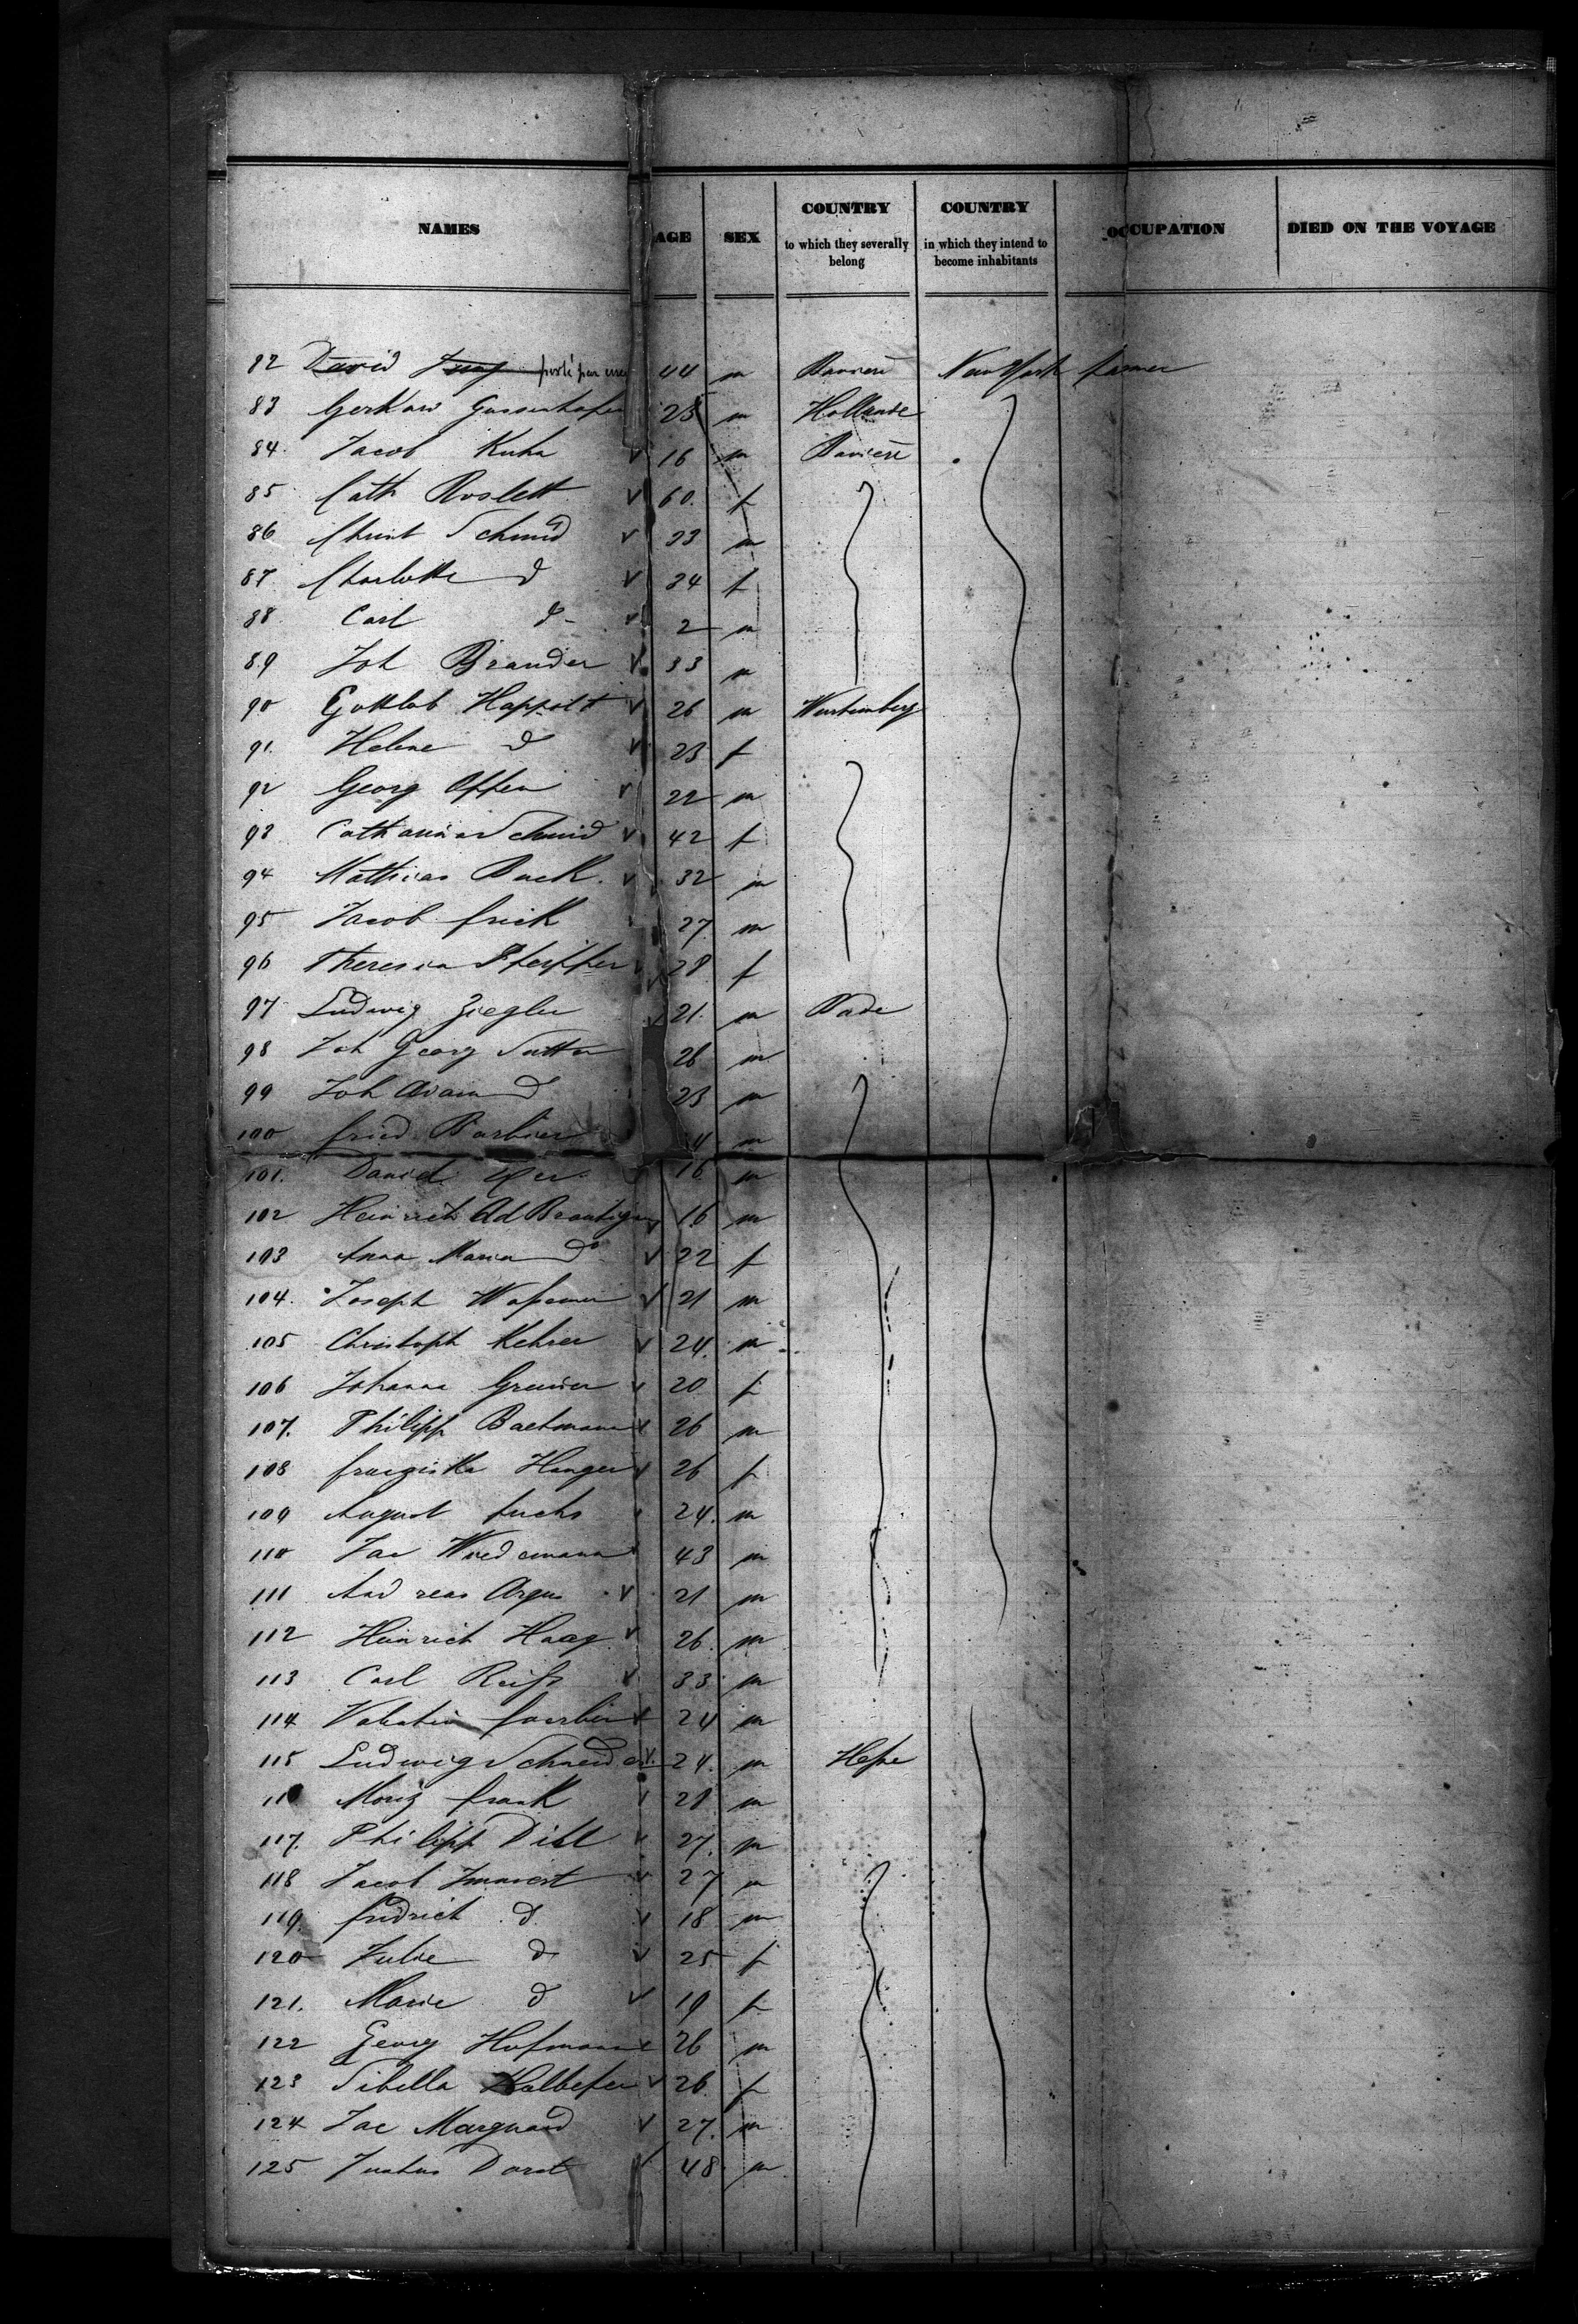 NAMES AGE SEX COUNTRY to which they severally belong COUNTRY in which they intend to become inhabitants OCCUPATION DIED ON THE VOYAGE
82 David Jung porté par 44 m Baviere New York farmer
83 Gerhard 25 m Hollande
84. Jacob Kuhn v 16 m Baviere
85 Cath Roslett v 60. f
86 Christ Schmid v 33 m
87. Charlotte d v 34 f
88. Carl d- v 2 m
89 Joh Brander v 33 m
90 Gottlob Happolt v 26 m Wurtemberg
91. Helene d v 23 f
92 Georg v 22 m
93 Catharina Schmid v 42 f
94 Mathias Buck. v 32 m
95 Jacob Frick 27 m
96 Theresia Pfeiffer v 28 f
97 Ludwig Ziegler v 21. m Bade
98 Joh Georg Sutter 26 m
99 Joh Adam d 23 m
100 Fried Barbier 4 m
101. David 16 m
102 Heinrich Ad Brautigam 16 m
103 Anna Maria do v 22 f
104. Joseph v 21 m
105 Christoph Kehrer v 24. m
106 Johanna Greiner v 20 f
107. Philipp Bachmann v 26 m
108 Franziska Hanger v 26 f
109 August Fuchs 24. m
110 Jac Wiedemann 43 m
111 Andreas Argus v 21 m
112 Heinrich Haag v 26. m
113 Carl Reiß v 33 m
114 Valentin 24 m
115 Ludwig Schneider v. 24. m Heße
11 Moriz Frank 28 m
117. Philipp Dihl v 27. m
118 Jacob v 27 m
119. Fridrich d v 18 m
120 Julie d v 25 f
121. Marie d v 19 f
122 Georg Hofmann v 26 m
123 Sibella v 26. f
124 Jac Marquard v 27. m
125 Justus Dorst v 48 m